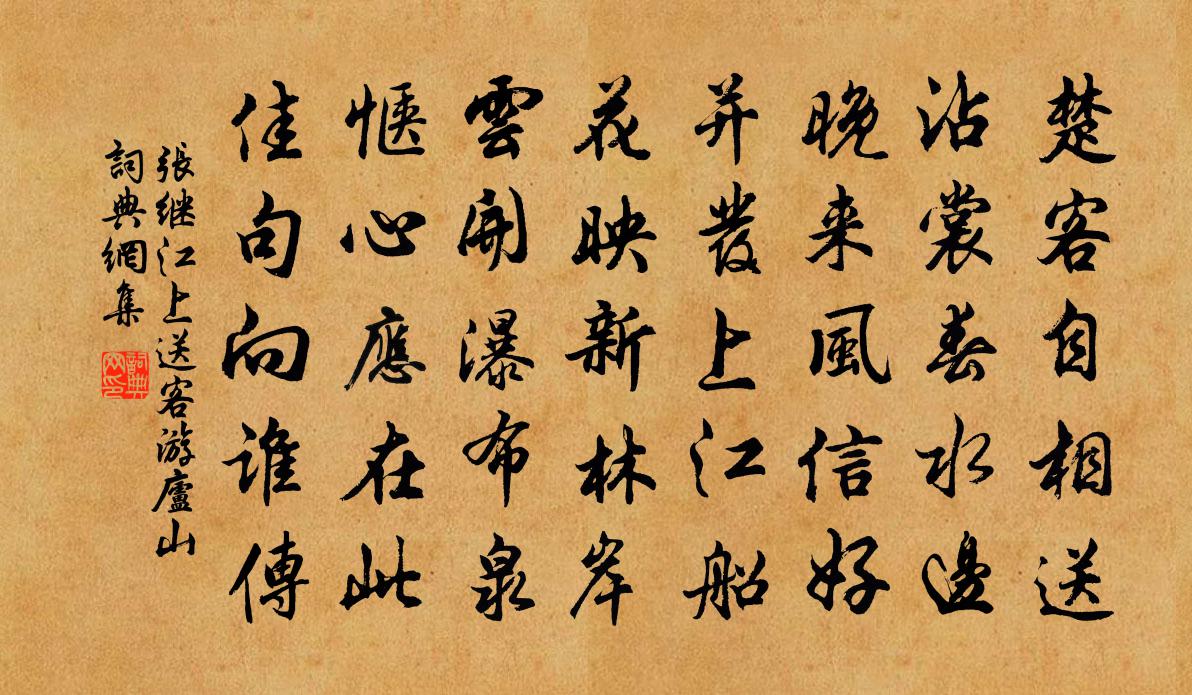 楚客自相送
沾裳春水邊
晚来風信好
并發上江船
花映新林岸
雲開瀑布泉
愜心應在此
佳句向誰傳
張继江上送客游廬山
詞典網集
詞典网印